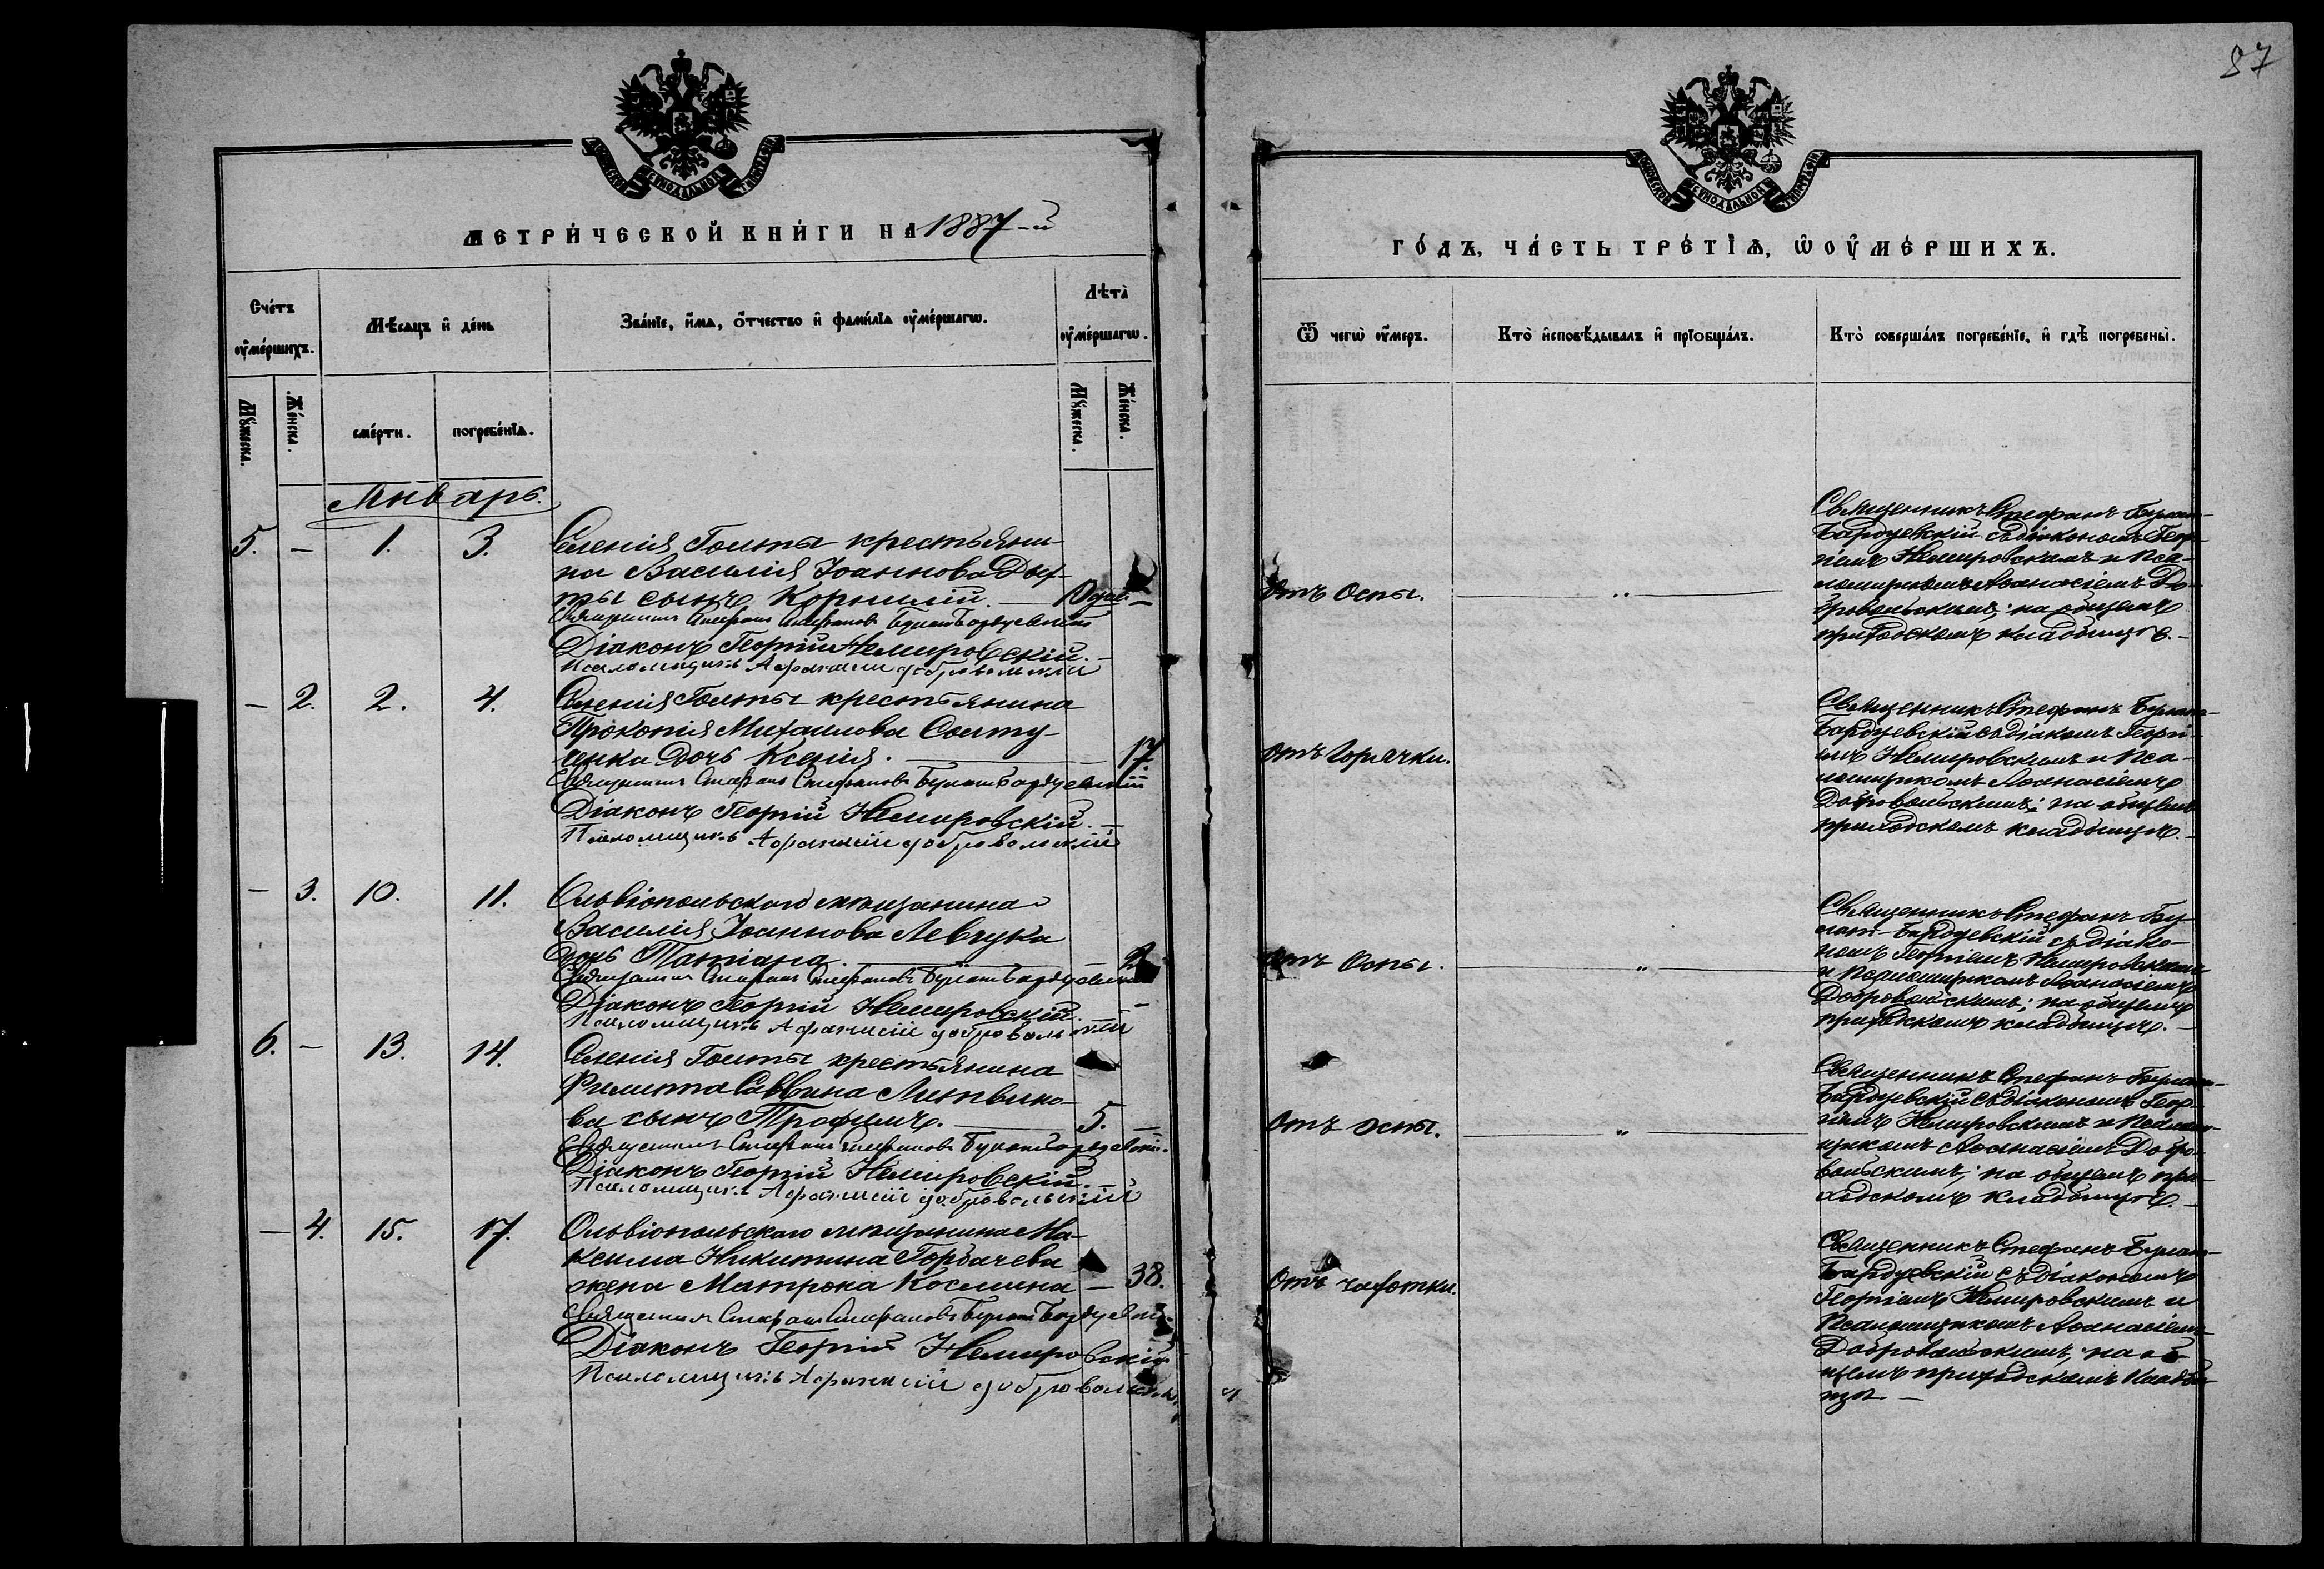 87
МОСКОВСКОЙ СѴНОДАЛЬНОЙ ТИПОГРАФІИ
МОСКОВСКОЙ СѴНОДАЛЬНОЙ ТИПОГРАФІИ
МЕТРИ́ЧЕСКОЙ КНИ́ГИ НА 1887-й
ГО́ДЪ, ЧА́СТЬ ТРЕ́ТІѦ, Ѡ ОУ҆МЕ́РШИХЪ.
Сче́тъ оу҆ме́ршихъ.
Мѣ́сяцъ и҆ де́нь
Зва́нїе, и҆́мѧ, о҆́тчество и҆ фами́лїѧ оу҆ме́ршагѡ.
Лѣта̀ оу҆ме́ршагѡ.
Ѿ чегѡ̀ оу҆́меръ.
Кто̀ и҆сповѣ́дывалъ и҆ прїобща́лъ.
Кто̀ соверша́лъ погребе́нїе, и҆ гдѣ̀ погребены̀.
Мꙋ́жеска.
Же́нска.
сме́рти.
погребе́нїѧ.
Мꙋ́жеска.
Же́нска.
Январь.
5. — 1. 3.
Селенія Голты крестьяни-
на Василія Іоаннова Дых-
ты сынъ Корнилій. —
Священникъ Стефанъ Стефановъ Булатъ Бардуевскій
Діаконъ Георгій Немировскій. —
Псаломщикъ Афанасій Добровольскій
отъ Оспы. — „ —
Священникъ Стефанъ Булат-
Бардуевскій съ діакономъ Геор-
гіемъ Немировскимъ и Пса-
ломщикомъ Аѳанасіемъ До-
бровольскимъ; на общемъ
приходскомъ кладбищѣ. —
— 2. 2. 4.
Селенія Голты крестьянина
Прокопія Михаилова Солту-
ленка дочь Ксенія. — 17
Священникъ Стефанъ Стефановъ Булатъ Бардуевскій
Діаконъ Георгій Немировскій. —
Псаломщикъ Афанасій Добровольскій
отъ Горячки.
Священникъ Стефанъ Булат-
Бардуевскій съ діаконом Георгі-
емъ Немировскимъ и Пса-
ломщикомъ Аѳанасіемъ
Добровольскимъ; на общемъ
приходскомъ кладбищѣ. —
— 3. 10. 11.
Ольвіопольскаго мѣщанина
Василія Іоаннова Левчука
дочь Татіана. — 2
Священникъ Стефанъ Стефановъ Булатъ Бардуевскій
Діаконъ Георгій Немировскій. —
Псаломщикъ Афанасій Добровольскій
отъ Оспы. — „ —
Священникъ Стефанъ Бу-
лат-Бардуевскій съ діако-
номъ Георгіемъ Немировскимъ
и Псаломщикомъ Аѳанасіемъ
Добровольскимъ; на общемъ
приходскомъ кладбищѣ. —
6. — 13. 14.
Селенія Голты крестьянина
Филиппа Саввина Литвино-
ва сынъ Трофимъ. — 5. —
Священникъ Стефанъ Стефановъ Булатъ Бардуевскій.
Діаконъ Георгій Немировскій. —
Псаломщикъ Афанасій Добровольскій
отъ оспы. — „ —
Священникъ Стефанъ Булат-
Бардуевскій съ діакономъ Геор-
гіемъ Немировскимъ и Псалом-
щикомъ Аѳанасіемъ Добро-
вольскимъ; на общемъ при-
ходскомъ кладбищѣ. —
— 4. 15. 17.
Ольвіопольскаго мѣщанина Ма-
ксима Никитина Горбачева
жена Матрона Космина — 38.
Священникъ Стефанъ Стефановъ Булатъ Бардуевскій
Діаконъ Георгій Немировскій
Псаломщикъ Афанасій Добровольскій
отъ чахотки.
Священникъ Стефанъ Булат-
Бардуевскій съ діакономъ
Георгіемъ Немировскимъ и
Псаломщикомъ Аѳанасіем
Добровольскимъ; на об-
щемъ приходскомъ кладби-
щѣ. —